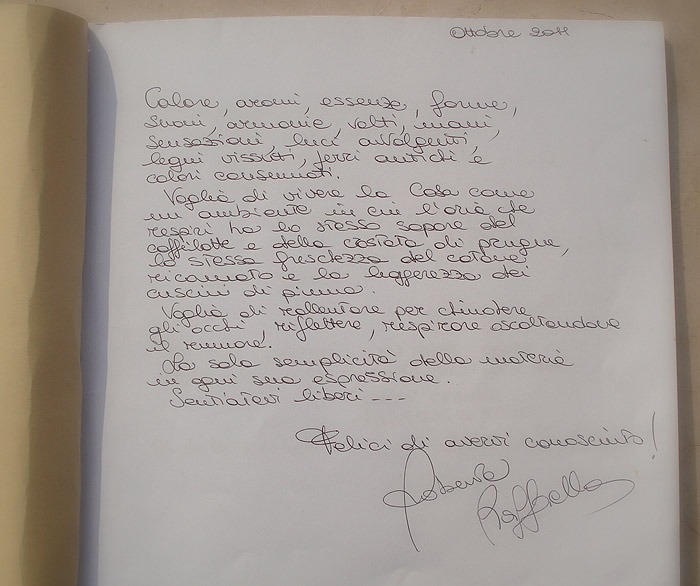 Ottobre 2011
Calore, aromi, essenze, forme,
suoni, armonie, volti, mani,
sensazioni, luci avvolgenti,
legni vissuti, ferri antichi e
colori consumati.
Voglia di vivere la Casa come
un ambiente in cui l'aria che
respiri ha lo stesso sapore del
caffélatte e della crostata di prugne,
la stessa freschezza del cotone
ricamato e la leggerezza dei
cuscini di piuma.
Voglia di rallentare per chiudere
gli occhi, riflettere, respirare ascoltandone
il rumore.
La sola semplicità della materia
in ogni sua espressione.
Sentiatevi liberi ---
Felici di avervi conosciuto!
Roberta
Raffaella